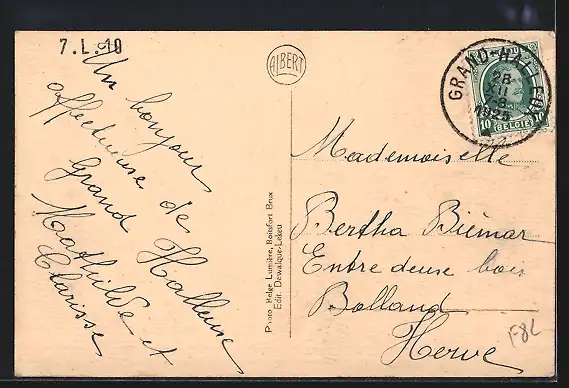 7.L.10
Un bonjour
affectueuse de
Grand Halleux
Mathilde et
Clarisse
ALBERT
Photo Belge Lumière, Boitsfort Brux
Edit. Dewalque-Lekeu
GRAND-HALLEUX
28
XII
8
1925
10 BELGIE 10
Mademoiselle
Bertha Biémar
Entre deux bois
Bolland
Herve
F82